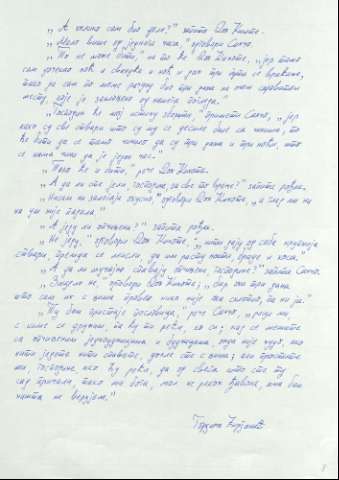 „А колико сам био доле?" запита Дон Кихоте.
„Мало више од једнога часа," одговори Санчо.
„То не може бити," на то ће Дон Кихоте, „јер тамо
сам дочекао ноћ и свануће и ноћ и дан три пута се враћали,
тако да сам по моме рачуну био три дана на оном скровитом
месту, које је заклоњено од нашега погледа."
„Господин ће мој истину зборити," примети Санчо, „јер
како су све ствари што су му се десиле биле са чинима, то
ће бити да се њему чинило да су три дана и три ноћи, што
се нама чини да је један час."
„Тако ће и бити," рече Дон Кихоте.
„А да ли сте јели, господине, за све то време?" запита рођак.
„Нисам ни залогаја окусио," одговори Дон Кихоте, „а глад ми ни
на ум није падала."
„А једу ли очињени?" запита рођак.
„Не једу," одговори Дон Кихоте, „нити имају од себе крупнија
ствари, премда се мисли, да им расту нокти, брада и коса."
„А да ли случајно спавају очињени, господине?" запита Санчо.
„Зацело не," одговори Дон Кихоте; „бар ова три дана
што сам их с њима провео нико није ока склопио, па ни ја."
„Ту баш пристаје пословица," рече Санчо, „реци ми,
с киме се дружиш, па ћу ти рећи, ко си; кад се мешате
са очињеним
нити једете нити спавате, докле сте с њима; али простите
ми, господине, ако ћу рећи, да од свега што сте ту
сад причали, тако ми бога, мал' не рекох ђавола, ама баш
ништа не верујем."